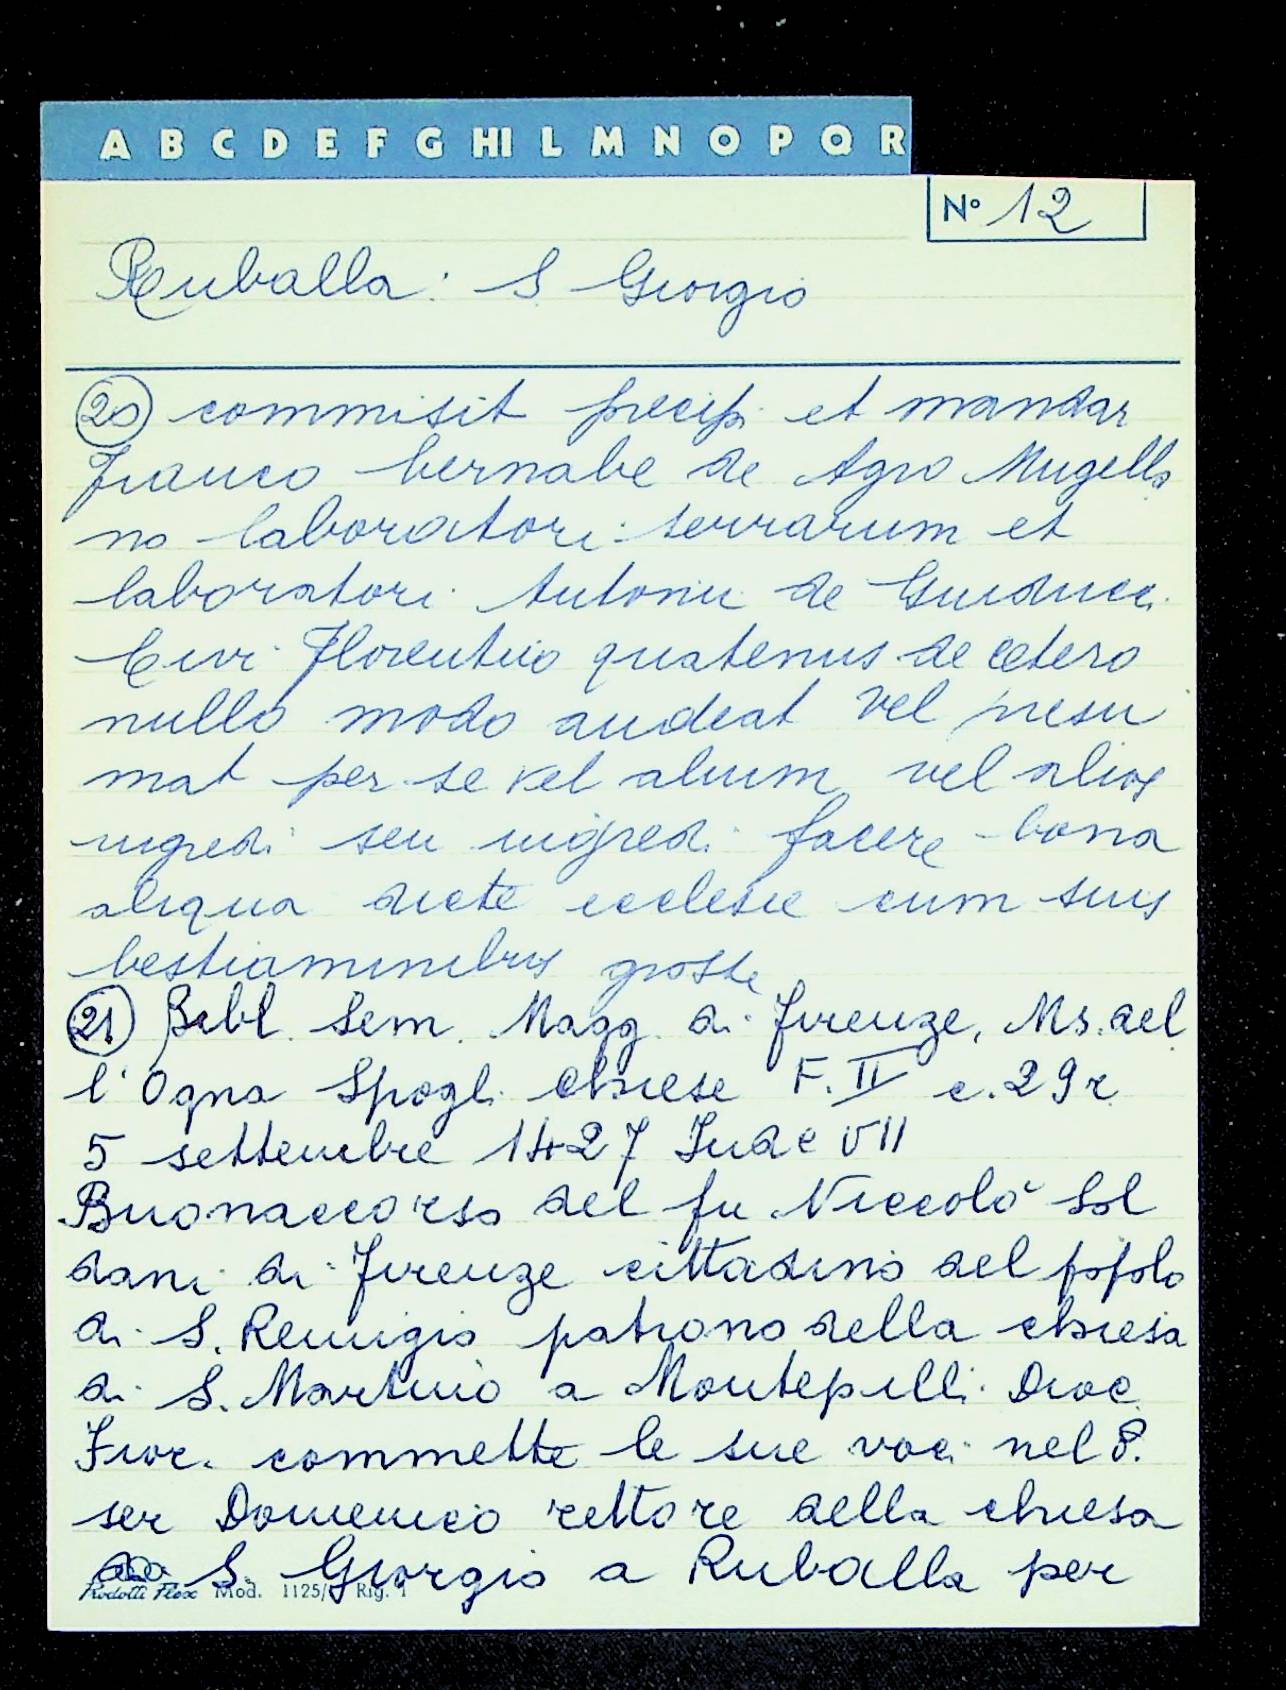 A B C D E F G HI L M N O P Q R
Nº 12
Ruballa: S Giorgio
20 commisit precip. et mandar
franco bernabe de Agro Mugella
no laboratori terrarum et
laboratori Antonii de Guiducci
Civi Florentino quatenus de cetero
nullo modo audeat vel presu
mat per se vel alium vel alios
ingredi seu ingredi facere bona
aliqua dicte ecclesie cum suis
bestiaminibus grosse
21 Bibl. Sem. Magg. di Firenze, Ms. del
l'Ogna Spogli chiese F. II c. 29 r
5 settembre 1427 Ind e VII
Buonaccorso del fu Niccolò Sol
dani di Firenze cittadino del popolo
di S. Remigio patrono della chiesa
di S. Martino a Montepilli Dioc
Fior. commette le sue voci nel P.
ser Domenico rettore della chiesa
di S. Giorgio a Ruballa per
Prodotti Flex Mod. 1125/ Rig. 1